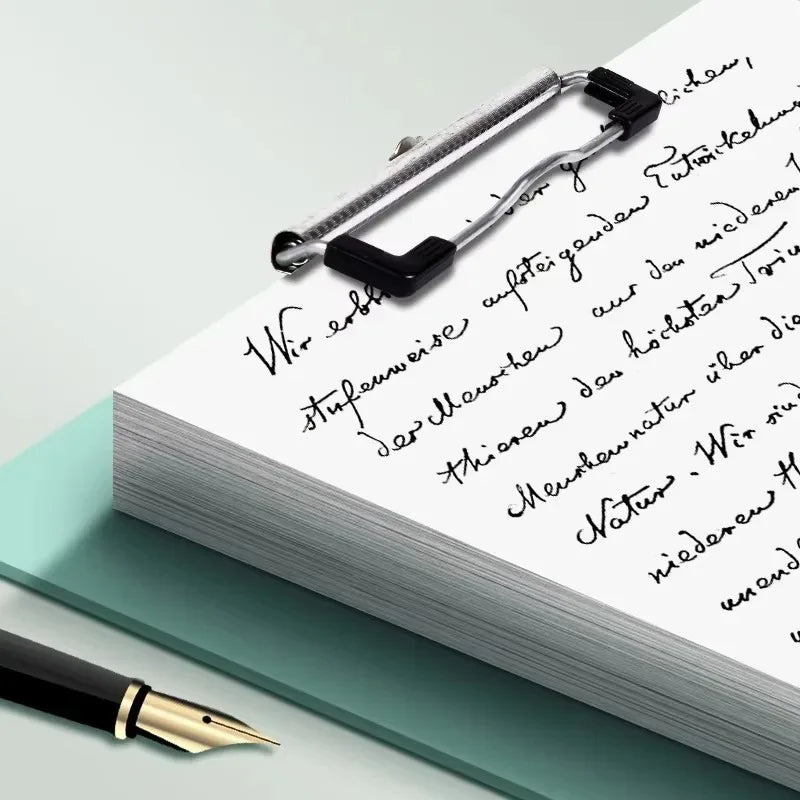 Wir der
stufenweise aufsteigenden Entwickelung
der Menschen aus den niederen
thieren den höchsten
Menschennatur über die
Natur. Wir sind
niederen